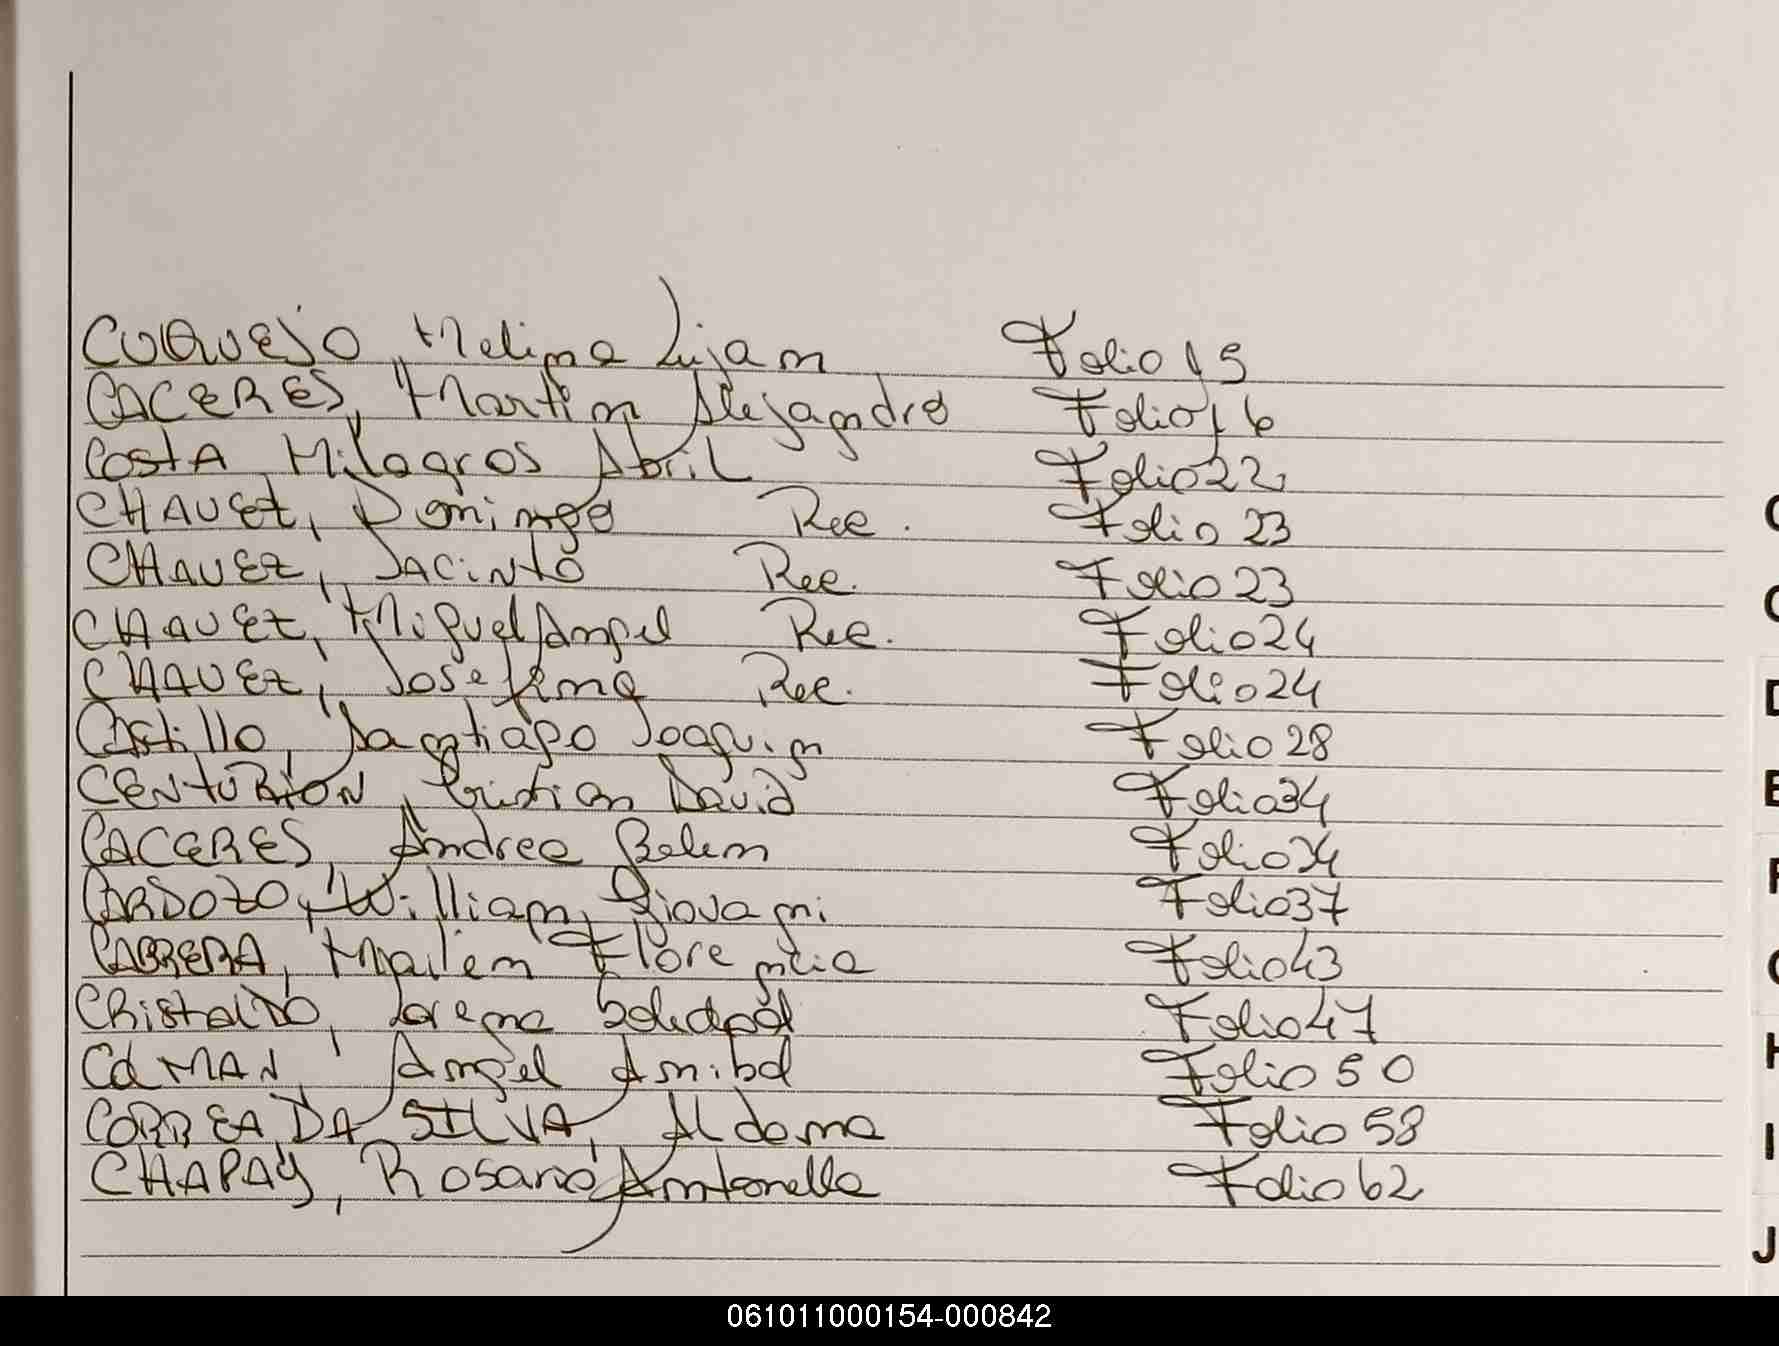 CUQUEJO, Melina Lujan Folio 15
CACERES, Martin Alejandro Folio 16
COSTA Milagros Abril Folio 22
CHAVEZ, Domingo Rec. Folio 23
CHAVEZ, JACiNtO Rec. Folio 23
CHAVEZ, Miguel Angel Rec. Folio 24
CHAVEZ, Josefina Rec. Folio 24
CAStillo, Santiago Joaquin Folio 28
CENTURION, Cristian David Folio 34
CACERES, Andrea Belen Folio 34
CARDOZO, William, Giovani Folio 37
CABRERA, Mailen Florencia Folio 43
CRistalDO, Lorena Soledad Folio 47
COLMAN, Angel Anibal Folio 50
CORREA DA SILVA, Aldana Folio 58
CHAPAY, Rosario Antonella Folio 62
C
C
D
E
F
G
H
I
J
061011000154-000842